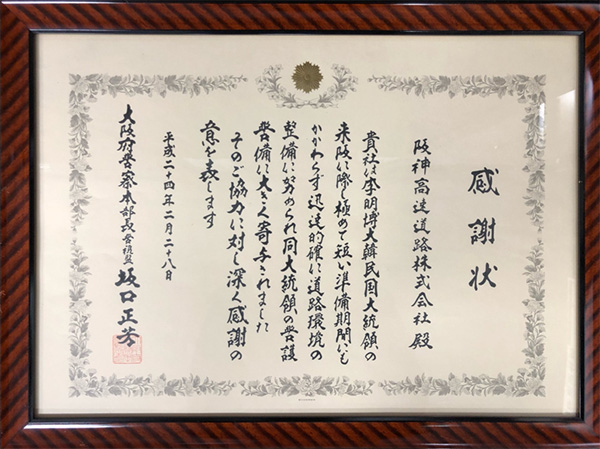 感謝状
阪神高速道路株式会社 殿
貴社は李明博大韓民国大統領の
来阪に際し極めて短い準備期間にも
かかわらず迅速的確に道路環境の
整備に努められ同大統領の警護
警備に大きく寄与されました
そのご協力に対し深く感謝の
意を表します
平成二十四年二月二十八日
大阪府警察本部長警視監 坂口正芳